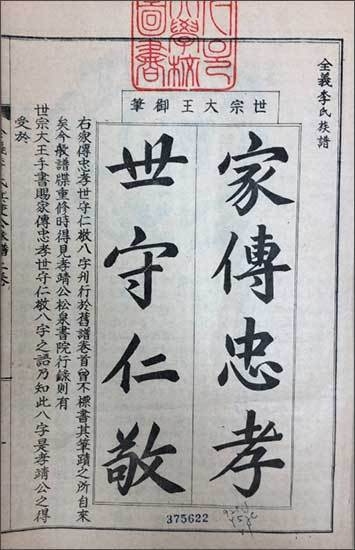 大學校
圖書
全義李氏族譜
世宗大王御筆
家傳忠孝
世守仁敬
右家傳忠孝世守仁敬八字刋行於舊譜卷首曾不標書其筆蹟之所自來
矣今般譜牒重修時得見孝靖公松泉書院行錄則有
世宗大王手書賜家傳忠孝世守仁敬八字之語乃知此八字是孝靖公之得
受於
375622